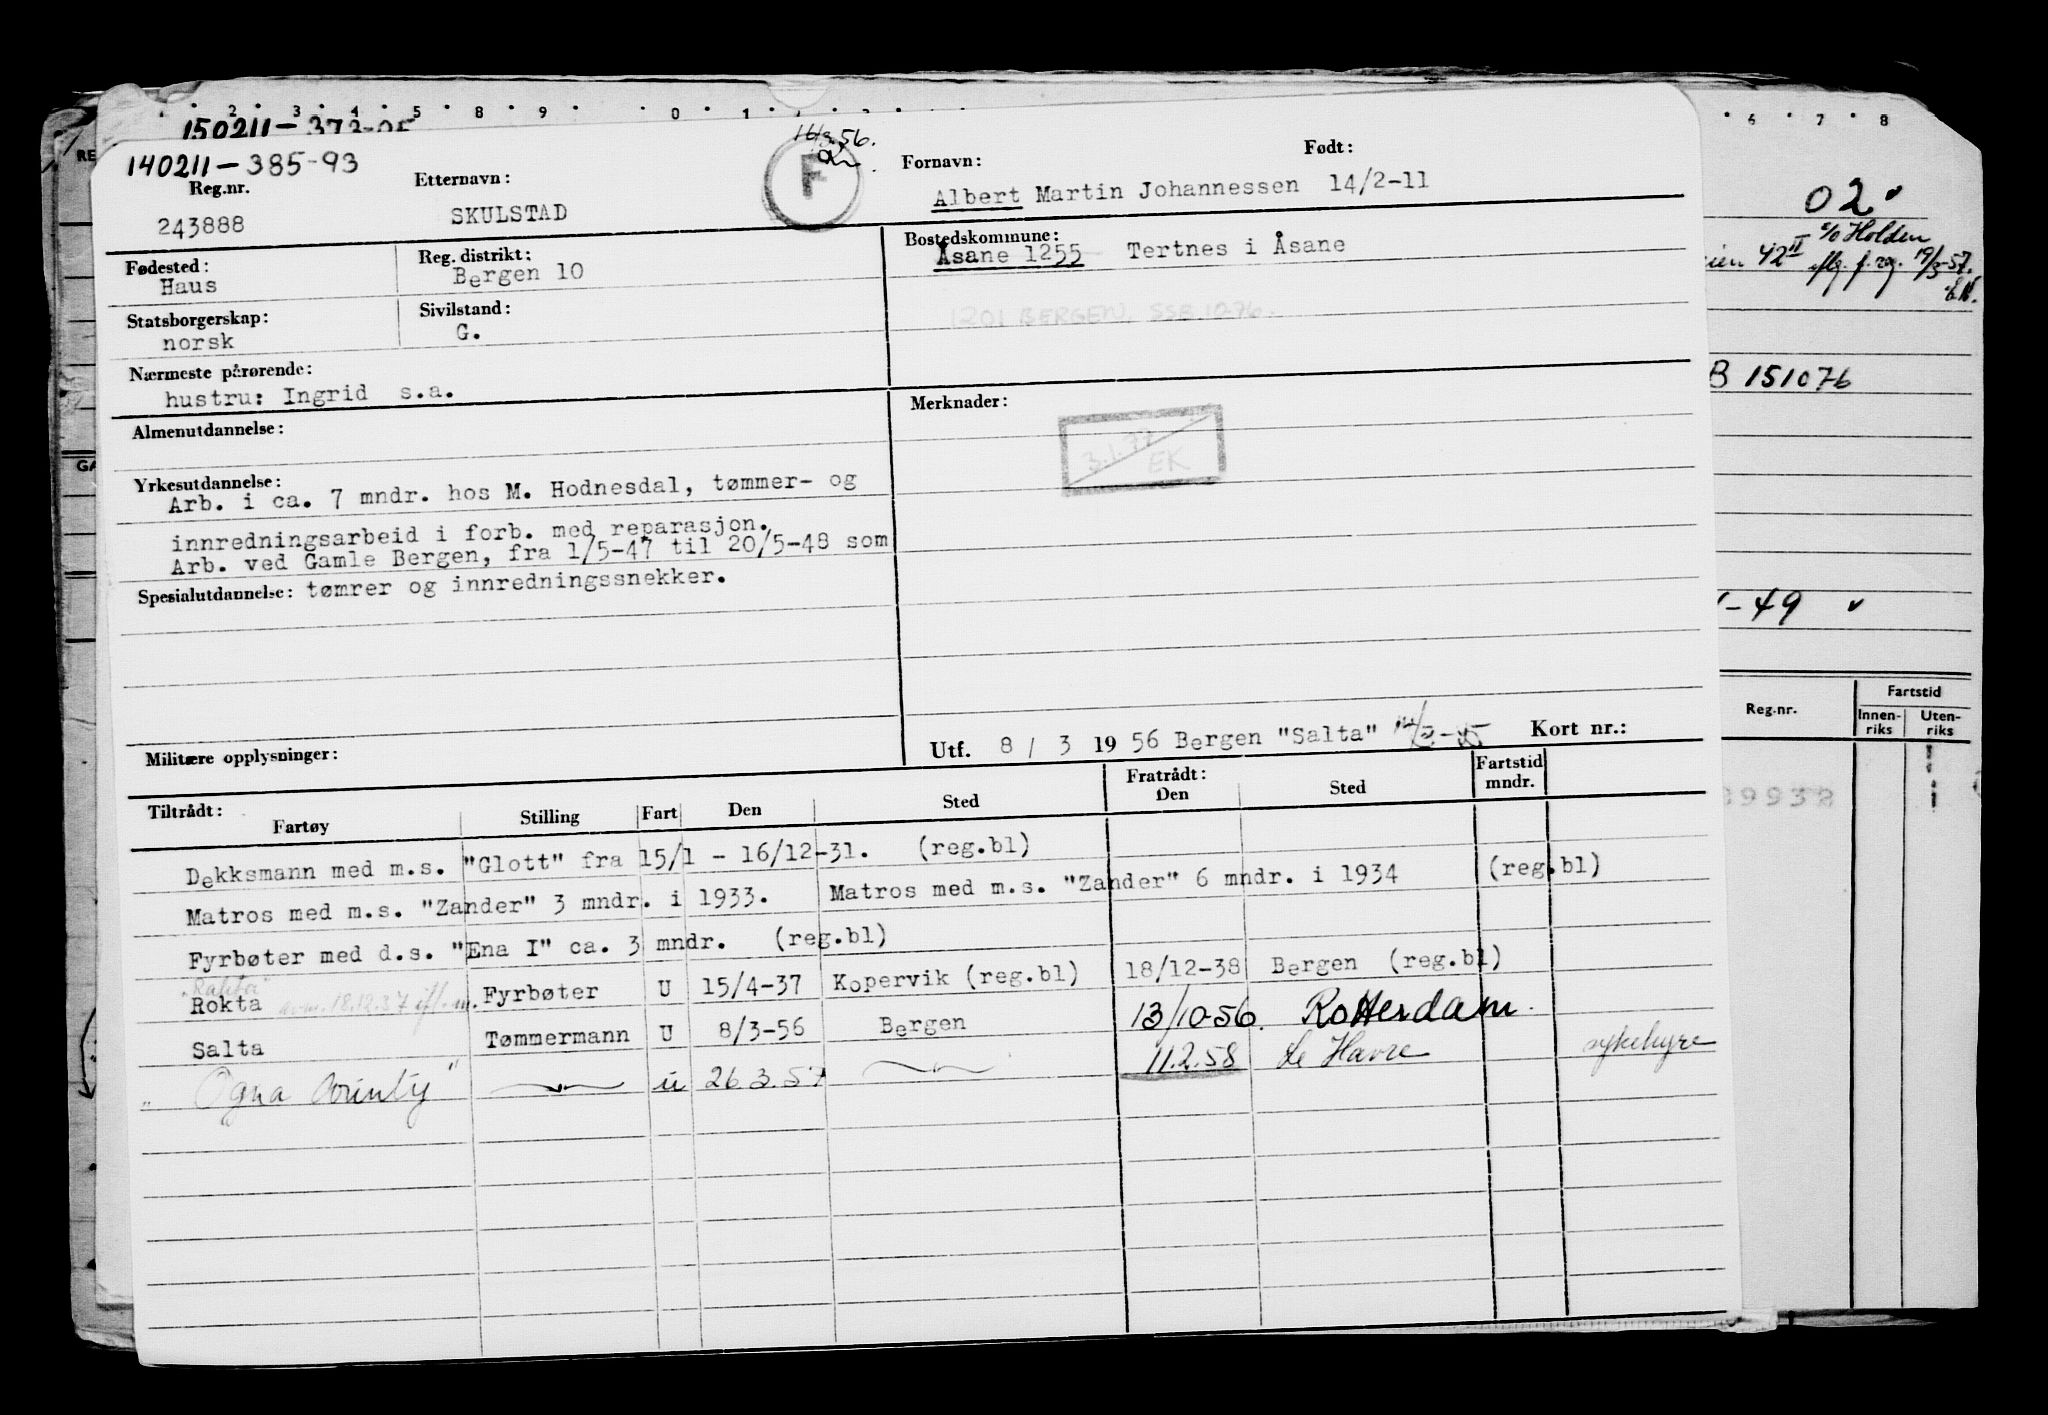 2 3 4 5 8 9 0 1
6 7 8
150211-373-05
140211-385-93
Reg.nr.
243888
Etternavn:
SKULSTAD
16/3.56.
F
Fornavn:
Albert Martin Johannessen
Født:
14/2-11
Fødested:
Haus
Reg. distrikt:
Bergen 10
Bostedskommune:
Åsane 1255 Tertnes i Åsane
1201 BERGEN, SSB 1076.
Statsborgerskap:
norsk
Sivilstand:
G.
Nærmeste pårørende:
hustru: Ingrid s.a.
Almenutdannelse:
Merknader:
3.1.77
EK
Yrkesutdannelse:
Arb. i ca. 7 mndr. hos M. Hodnesdal, tømmer- og
innredningsarbeid i forb. med reparasjon.
Arb. ved Gamle Bergen, fra 1/5-47 til 20/5-48 som
Spesialutdannelse: tømrer og innredningssnekker.
Militære opplysninger:
Utf. 8 / 3 19 56 Bergen "Salta" Kort nr.:
Tiltrådt:
Fartøy
Stilling
Fart
Den
Sted
Fratrådt:
Den
Sted
Fartstid
mndr.
Dekksmann med m.s. "Glott" fra 15/1 - 16/12-31. (reg.bl)
Matros med m.s. "Zander" 3 mndr. i 1933. Matros med m.s. "Zander" 6 mndr. i 1934 (reg.bl)
Fyrbøter med d.s. "Ena I" ca. 3 mndr. (reg.bl)
Rokta 18.12.37 Fyrbøter U 15/4-37 Kopervik (reg.bl) 18/12-38 Bergen (reg.bl)
Salta Tømmermann U 8/3-56 Bergen 13/10-56. Rotterdam.
"Ogna County" u 26.3.57 11.2.58 Le Havre sykehyre
RE
GA
02
c/o Holden
eien 42 II 19/3-57.
B 151076
-49
Reg.nr.
Fartstid
Innen-
riks
Uten-
riks
9932